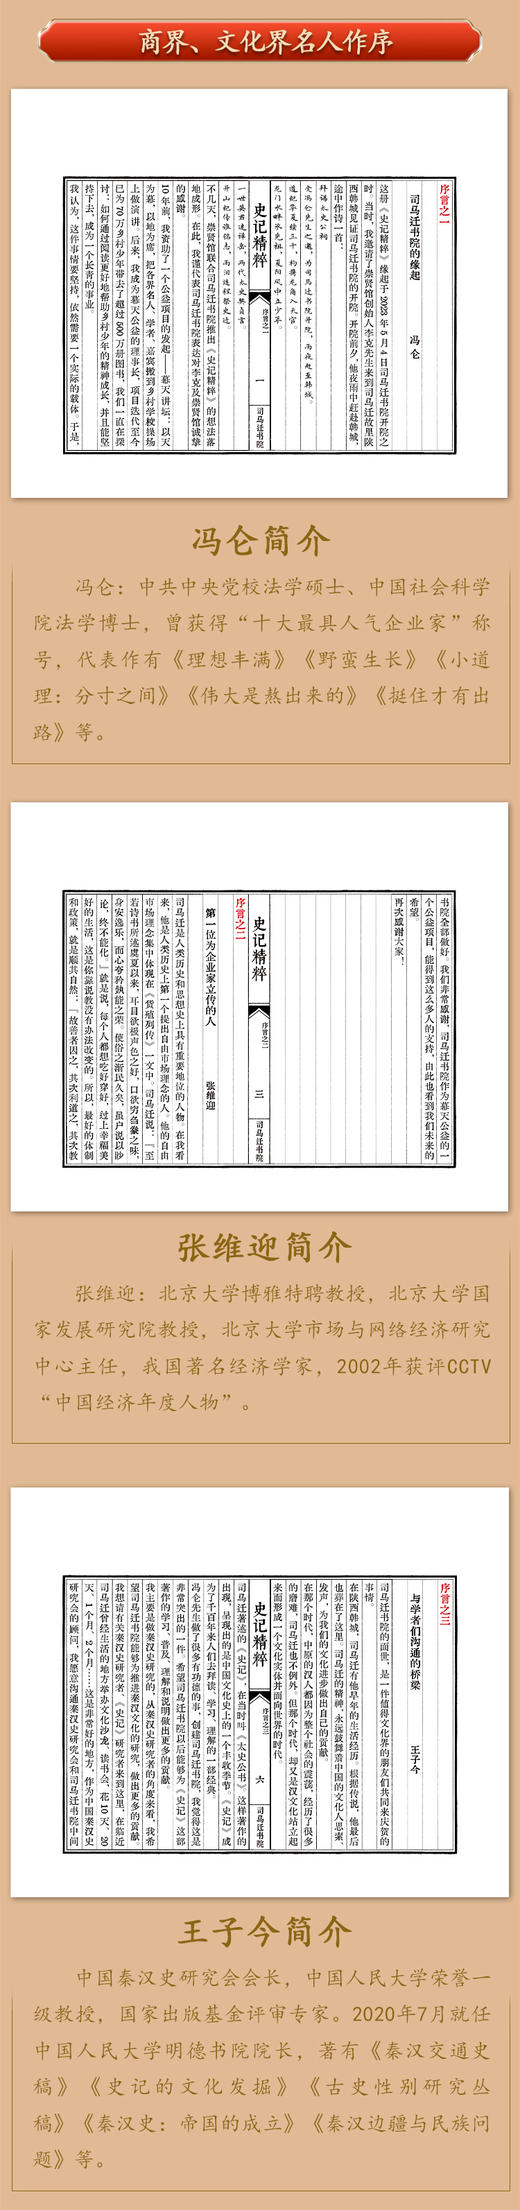 商界、文化界名人作序
序言之一
司马迁书院的缘起
冯仑
这册《史记精粹》缘起于2023年5月4日司马迁书院开院之
时，当时，我邀请了崇贤馆创始人李克先生来到司马迁故里陕
西韩城见证司马迁书院的开院。开院前夕，他夜雨中赶赴韩城，
途中作诗一首：
拜谒太史公祠
受冯仑先生之邀，为司马迁书院开院，雨夜赴至韩城。
道纪华夏续三千，构得龙角入天宫。
龙门水畔承先祖，夏阳风中立少年。
史记精粹
序言之一
一
司马迁书院
不几天，崇贤馆联合司马迁书院推出《史记精粹》的想法落
地成形。在此，我谨代表司马迁书院表达对李克及崇贤馆诚挚
的感谢。
10年前，我资助了一个公益项目的发起——幕天讲坛：以天
为幕，以地为席，把各界名人、学者、嘉宾搬到乡村学校操场
上做演讲。后来，我成为幕天公益的理事长，项目迭代至今
已为70万乡村少年带去了超过500万册图书，我们一直在探
讨：如何通过阅读更好地帮助乡村少年的精神成长，并且能坚
持下去，成为一个长青的事业。
我认为，这件事情要坚持，依然需要一个实际的载体。于是，
冯仑简介
冯仑：中共中央党校法学硕士、中国社会科学
院法学博士，曾获得“十大最具人气企业家”称
号，代表作有《理想丰满》《野蛮生长》《小道
理：分寸之间》《伟大是熬出来的》《挺住才有出
路》等。
书院全部做好。我们非常感谢，司马迁书院作为幕天公益的一
个公益项目，能得到这么多人的支持，由此也看到我们未来的
希望。
再次感谢大家！
史记精粹
序言之二
三
司马迁书院
序言之二
第一位为企业家立传的人
张维迎
司马迁是人类历史和思想史上具有重要地位的人物。在我看
来，他是人类历史上第一个提出自由市场理念的人。他的自由
市场理念集中体现在《货殖列传》一文中。司马迁说：「至
若诗书所述虞夏以来，耳目欲极声色之好，口欲穷刍豢之味，
身安逸乐，而心夸矜执能之荣。使俗之渐民久矣，虽户说以眇
论，终不能化。」就是说，每个人都想吃好穿好，过上幸福美
好的生活，这是你靠说教没有办法改变的。所以，最好的体制
和政策，就是顺其自然：「故善者因之，其次利道之，其次教
张维迎简介
张维迎：北京大学博雅特聘教授，北京大学国
家发展研究院教授，北京大学市场与网络经济研究
中心主任，我国著名经济学家，2002年获评CCTV
“中国经济年度人物”。
序言之三
与学者们沟通的桥梁
王子今
司马迁书院的面世，是一件值得文化界的朋友们共同来庆贺的
事情。
在陕西韩城，司马迁有他早年的生活经历。根据传说，他最后
也葬在了这里。司马迁的精神，永远鼓舞着中国的文化人思索、
发声，为我们的文化进步做出自己的贡献。
在那个时代，中原的汉人都因为整个社会的震荡，经历了很多
的磨难，司马迁也不例外。但那个时代，却又是汉文化站立起
来而形成一个文化实体并面向世界的时代。
史记精粹
序言之三
六
司马迁书院
司马迁著述的《史记》，在当时叫《太史公书》，这样著作的
出现，呈现出的是中国文化史上的一个丰收季节。《史记》成
为了千百年来人们去拜读、学习、理解的一部经典。
冯仑先生做了很多有功德的事，创建司马迁书院，我觉得这是
非常突出的一件。希望司马迁书院以后能够为《史记》这部
著作的学习、普及、理解和说明做出更多的贡献。
我主要是做秦汉史研究的，从秦汉史研究者的角度来看，我希
望司马迁书院能够为推进秦汉文化的研究，做出更多的贡献。
我想请有关秦汉史研究者、《史记》研究者来到这里，在临近
司马迁曾经生活的地方举办文化沙龙、读书会，花10天、20
天、1个月、2个月……这是非常好的地方，作为中国秦汉史
研究会的顾问，我愿意沟通秦汉史研究会和司马迁书院中间
王子今简介
中国秦汉史研究会会长，中国人民大学荣誉一
级教授，国家出版基金评审专家。2020年7月就任
中国人民大学明德书院院长，著有《秦汉交通史
稿》《史记的文化发掘》《古史性别研究丛
稿》《秦汉史：帝国的成立》《秦汉边疆与民族问
题》等。